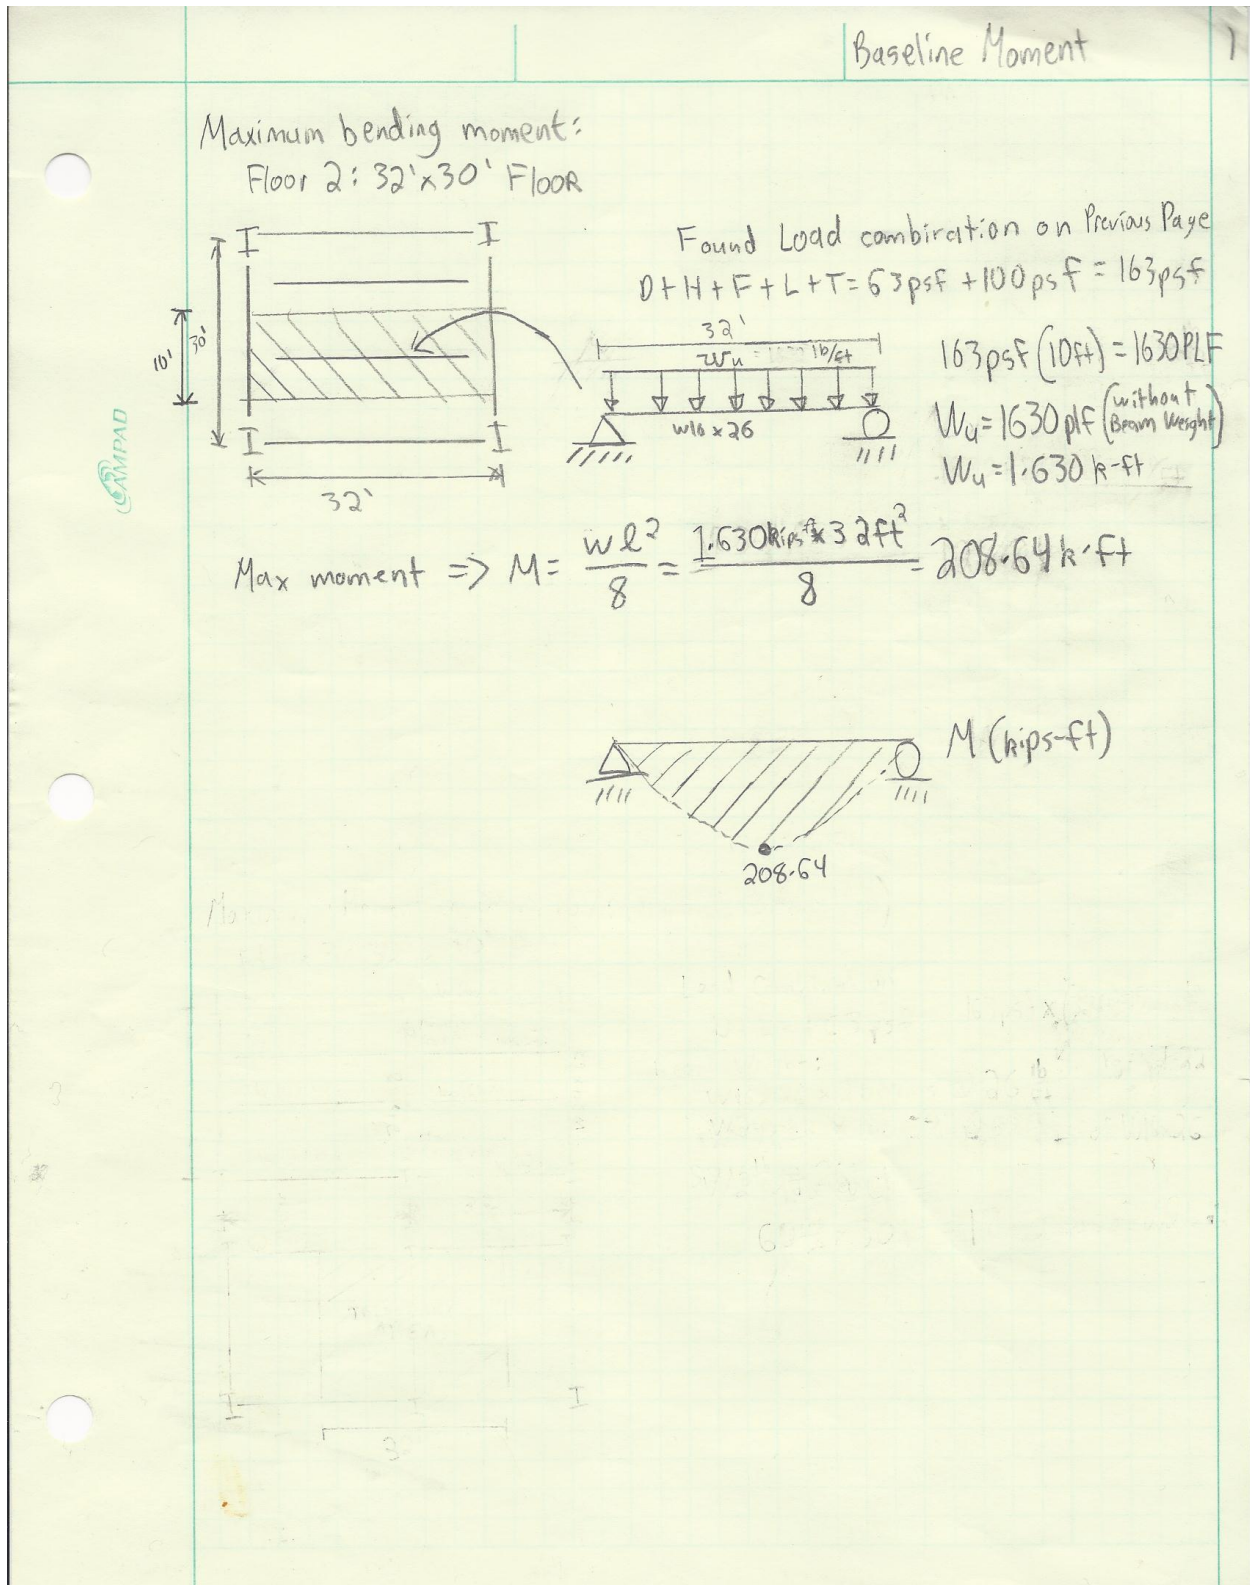 Baseline Moment
1
Maximum bending moment:
Floor 2: 32'x30' FlooR
Found Load combination on Previous Page
D+H+F+L+T=63psf+100psf=163psf
10'
30'
32'
32'
Wu lb/ft
W16x26
163psf(10ft)=1630PLF
Wu=1630plf(without Beam Weight)
Wu=1.630 k-ft
AMPAD
Max moment => M= wl²/8 = 1.630kips/ft*32ft²/8 = 208.64k·ft
M (kips-ft)
208.64